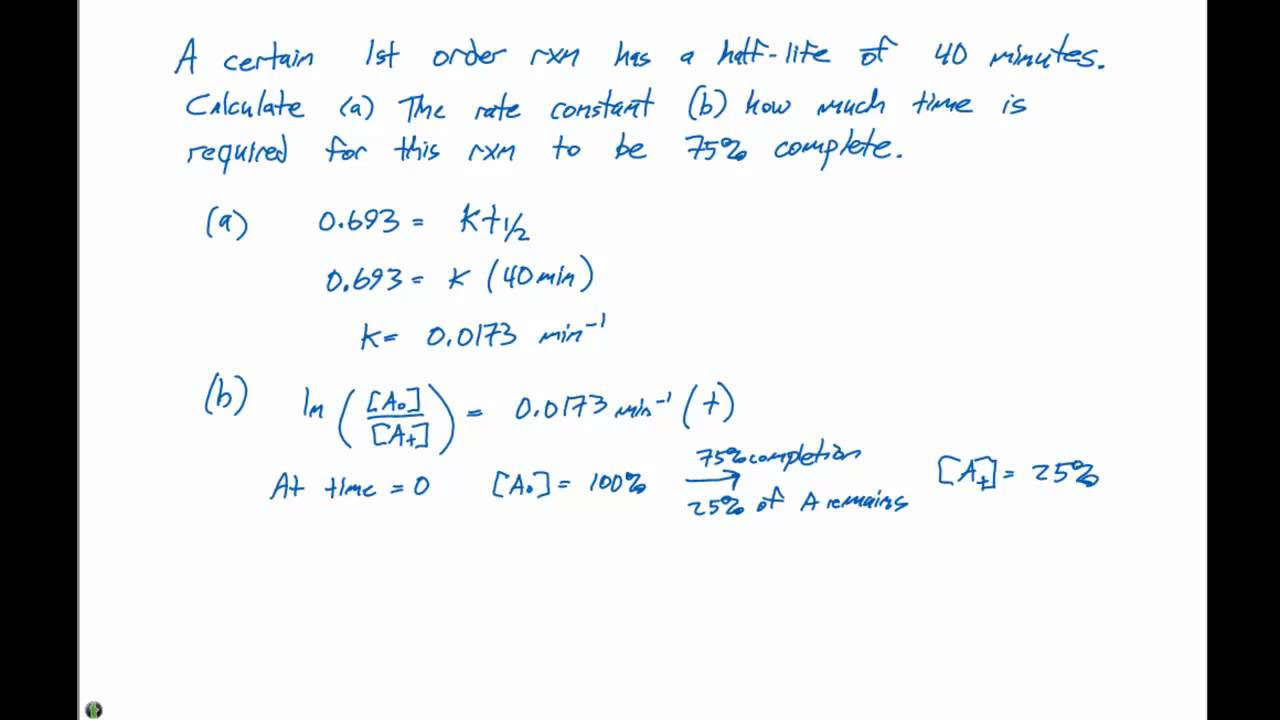 A certain 1st order rxn has a half-life of 40 minutes.
Calculate (a) The rate constant (b) how much time is
required for this rxn to be 75% complete.
(a) 0.693 = k t1/2
0.693 = k (40 min)
k = 0.0173 min⁻¹
(b) ln ([A₀]/[A_t]) = 0.0173 min⁻¹ (t)
75% completion
At time = 0 [A₀] = 100% → [A_t] = 25%
25% of A remains